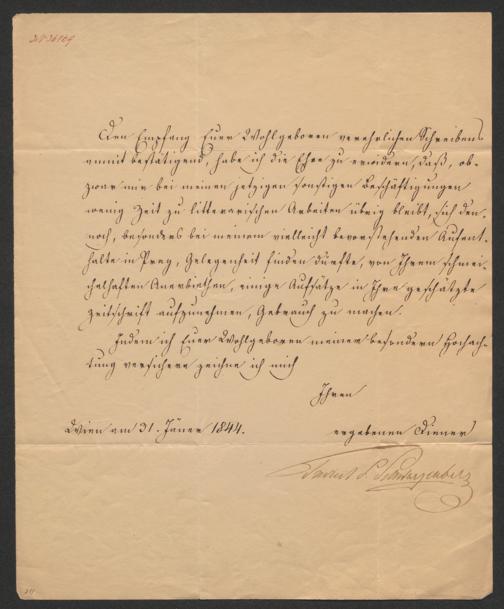 Den Empfang Euer Wohlgeboren verehrlichen Schreibens
anmit bestätigend, habe ich die Ehre zu erwidern, daß, ob-
zwar mir bei meinen jetzigen sonstigen Beschäftigungen
wenig Zeit zu litterarischen Arbeiten übrig bleibt, sich den-
noch, besonders bei meinem vielleicht bevorstehenden Aufent-
halte in Prag, Gelegenheit finden dürfte, von Ihrem schmei-
chelhaften Anerbiethen, einige Aufsätze in Ihre geschätzte
Zeitschrift aufzunehmen, Gebrauch zu machen.
Indem ich Euer Wohlgeboren meiner besondern Hochach-
tung versichere zeichne ich mich
Ihren
Wien am 31. Jäner 1844.
ergebenen Diener
Schwarzenberg